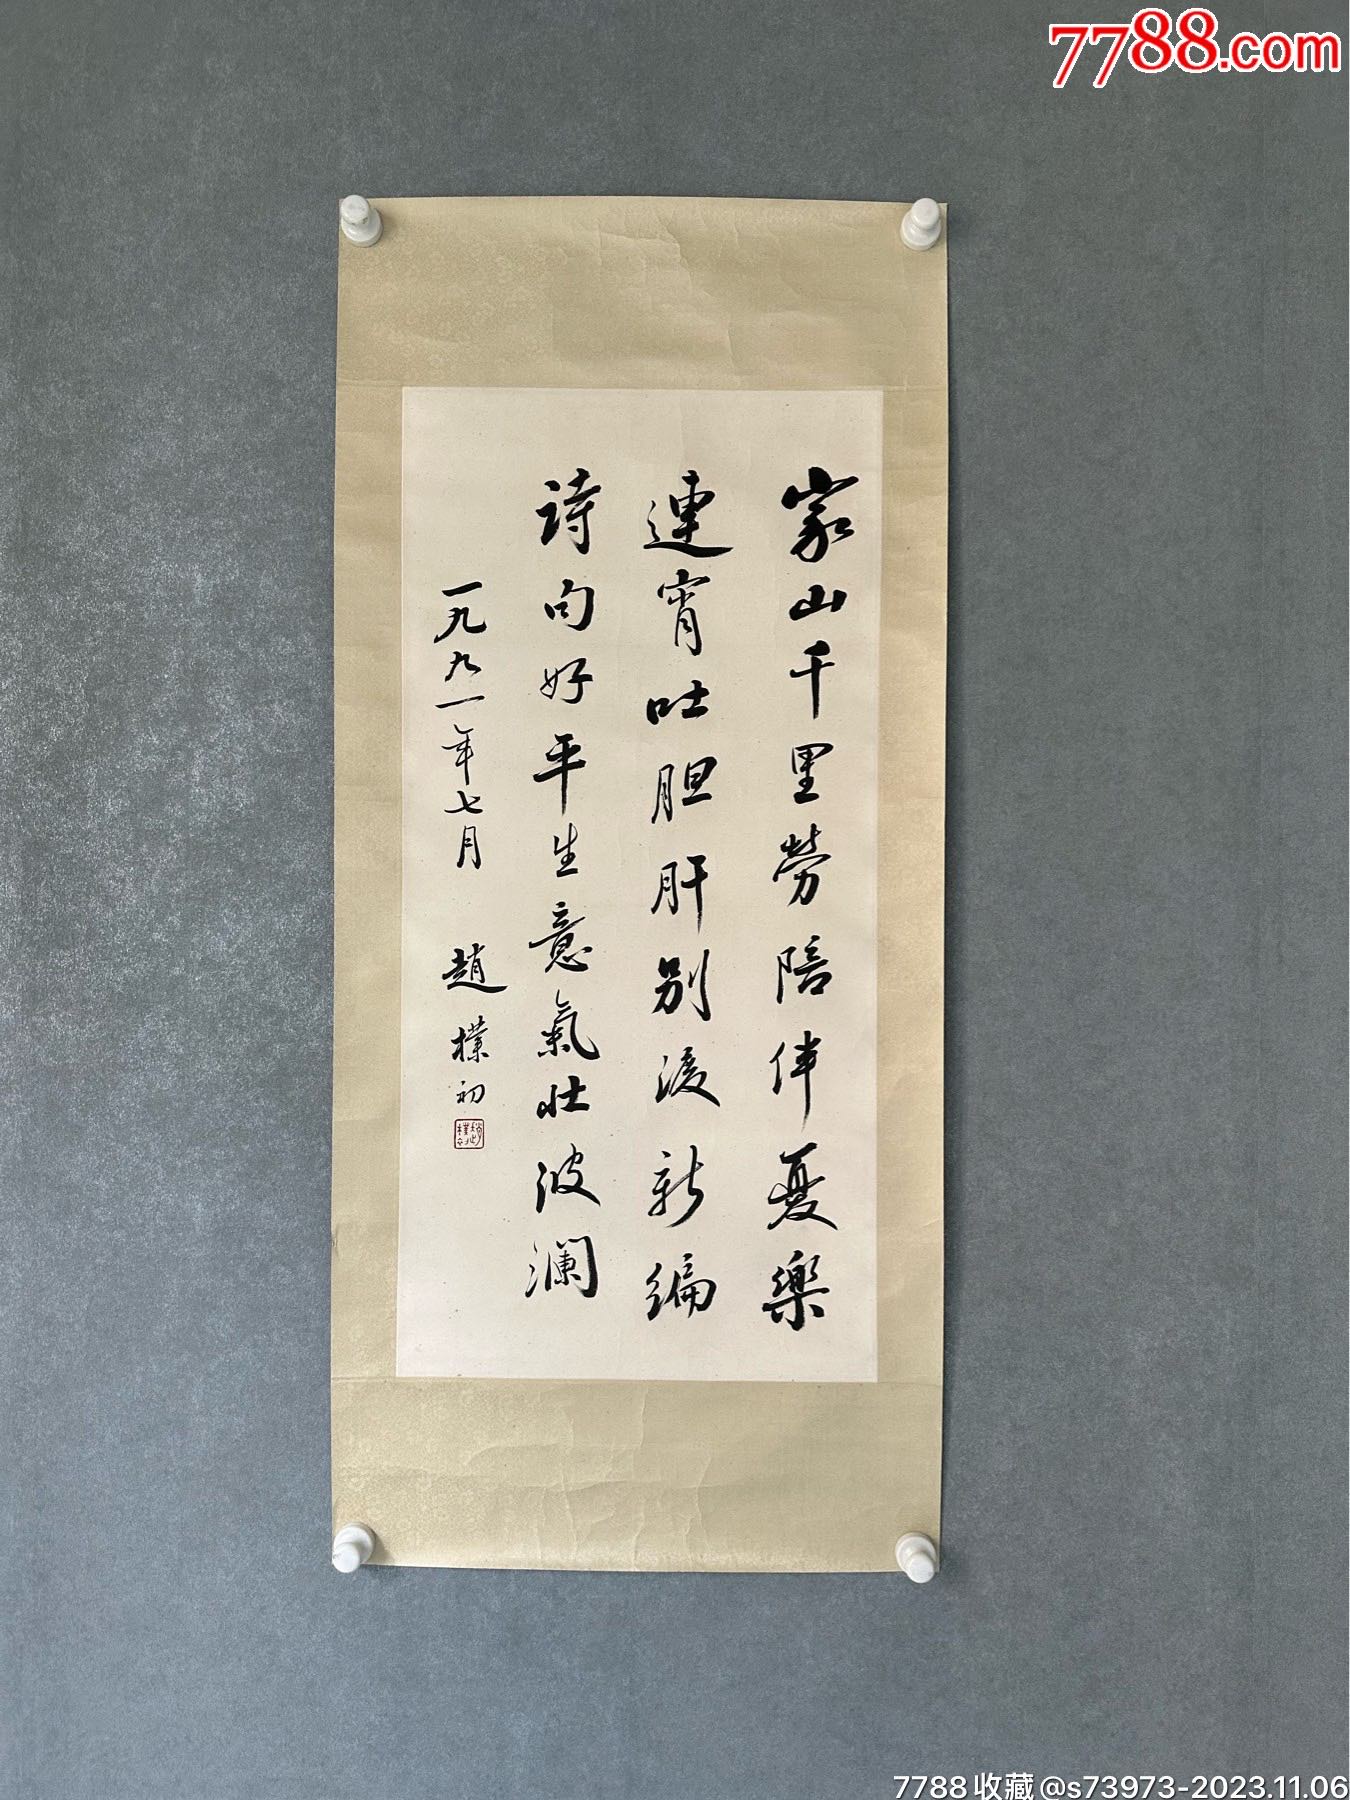 7788.com
家山千里劳陪伴憂樂
連宵吐胆肝别後新编
诗句好平生意氣壮波澜
一九九一年七月 趙樸初
7788收藏@s73973-2023.11.06